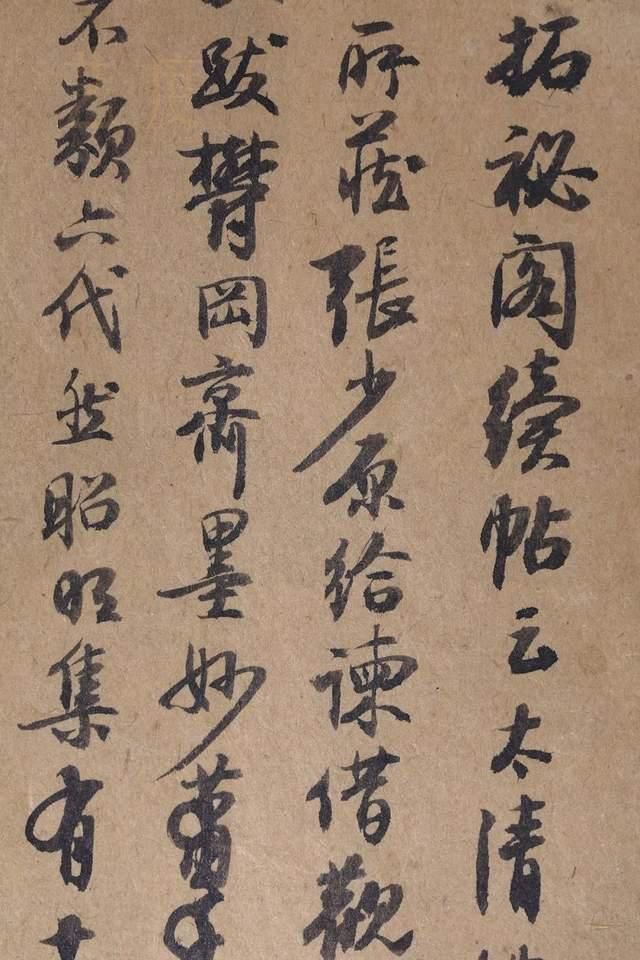 拓祕閣續帖云太清
所藏張少原給諫借觀
跋鬱岡齋墨妙
不類六代然昭明集有十